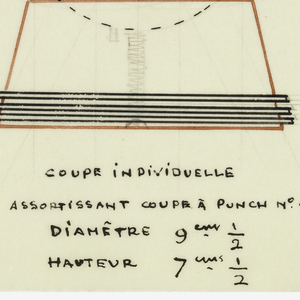 COUPE iNDiViDUELLE
ASSORTISSANT COUPE À PUNCH Nº.
DIAMÈTRE 9 cms 1/2
HAUTEUR 7 cms 1/2